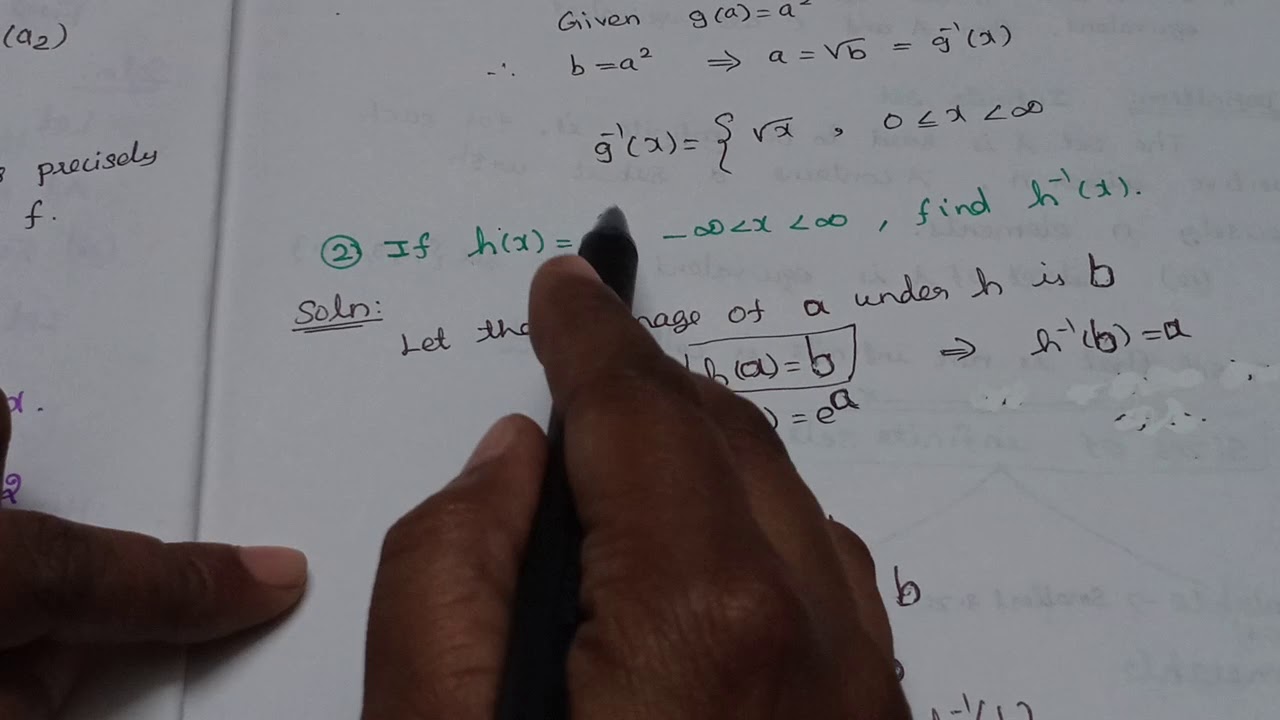 (a₂)
precisely
f.
α.
2
Given g(a)=a²
∴ b=a² ⇒ a=√b = g⁻¹(x)
g⁻¹(x)= { √x , 0≤x<∞
② If h(x)= -∞<x<∞, find h⁻¹(x).
Soln:
Let the image of a under h is b
h(a)=b ⇒ h⁻¹(b)=a
) = eᵃ
b